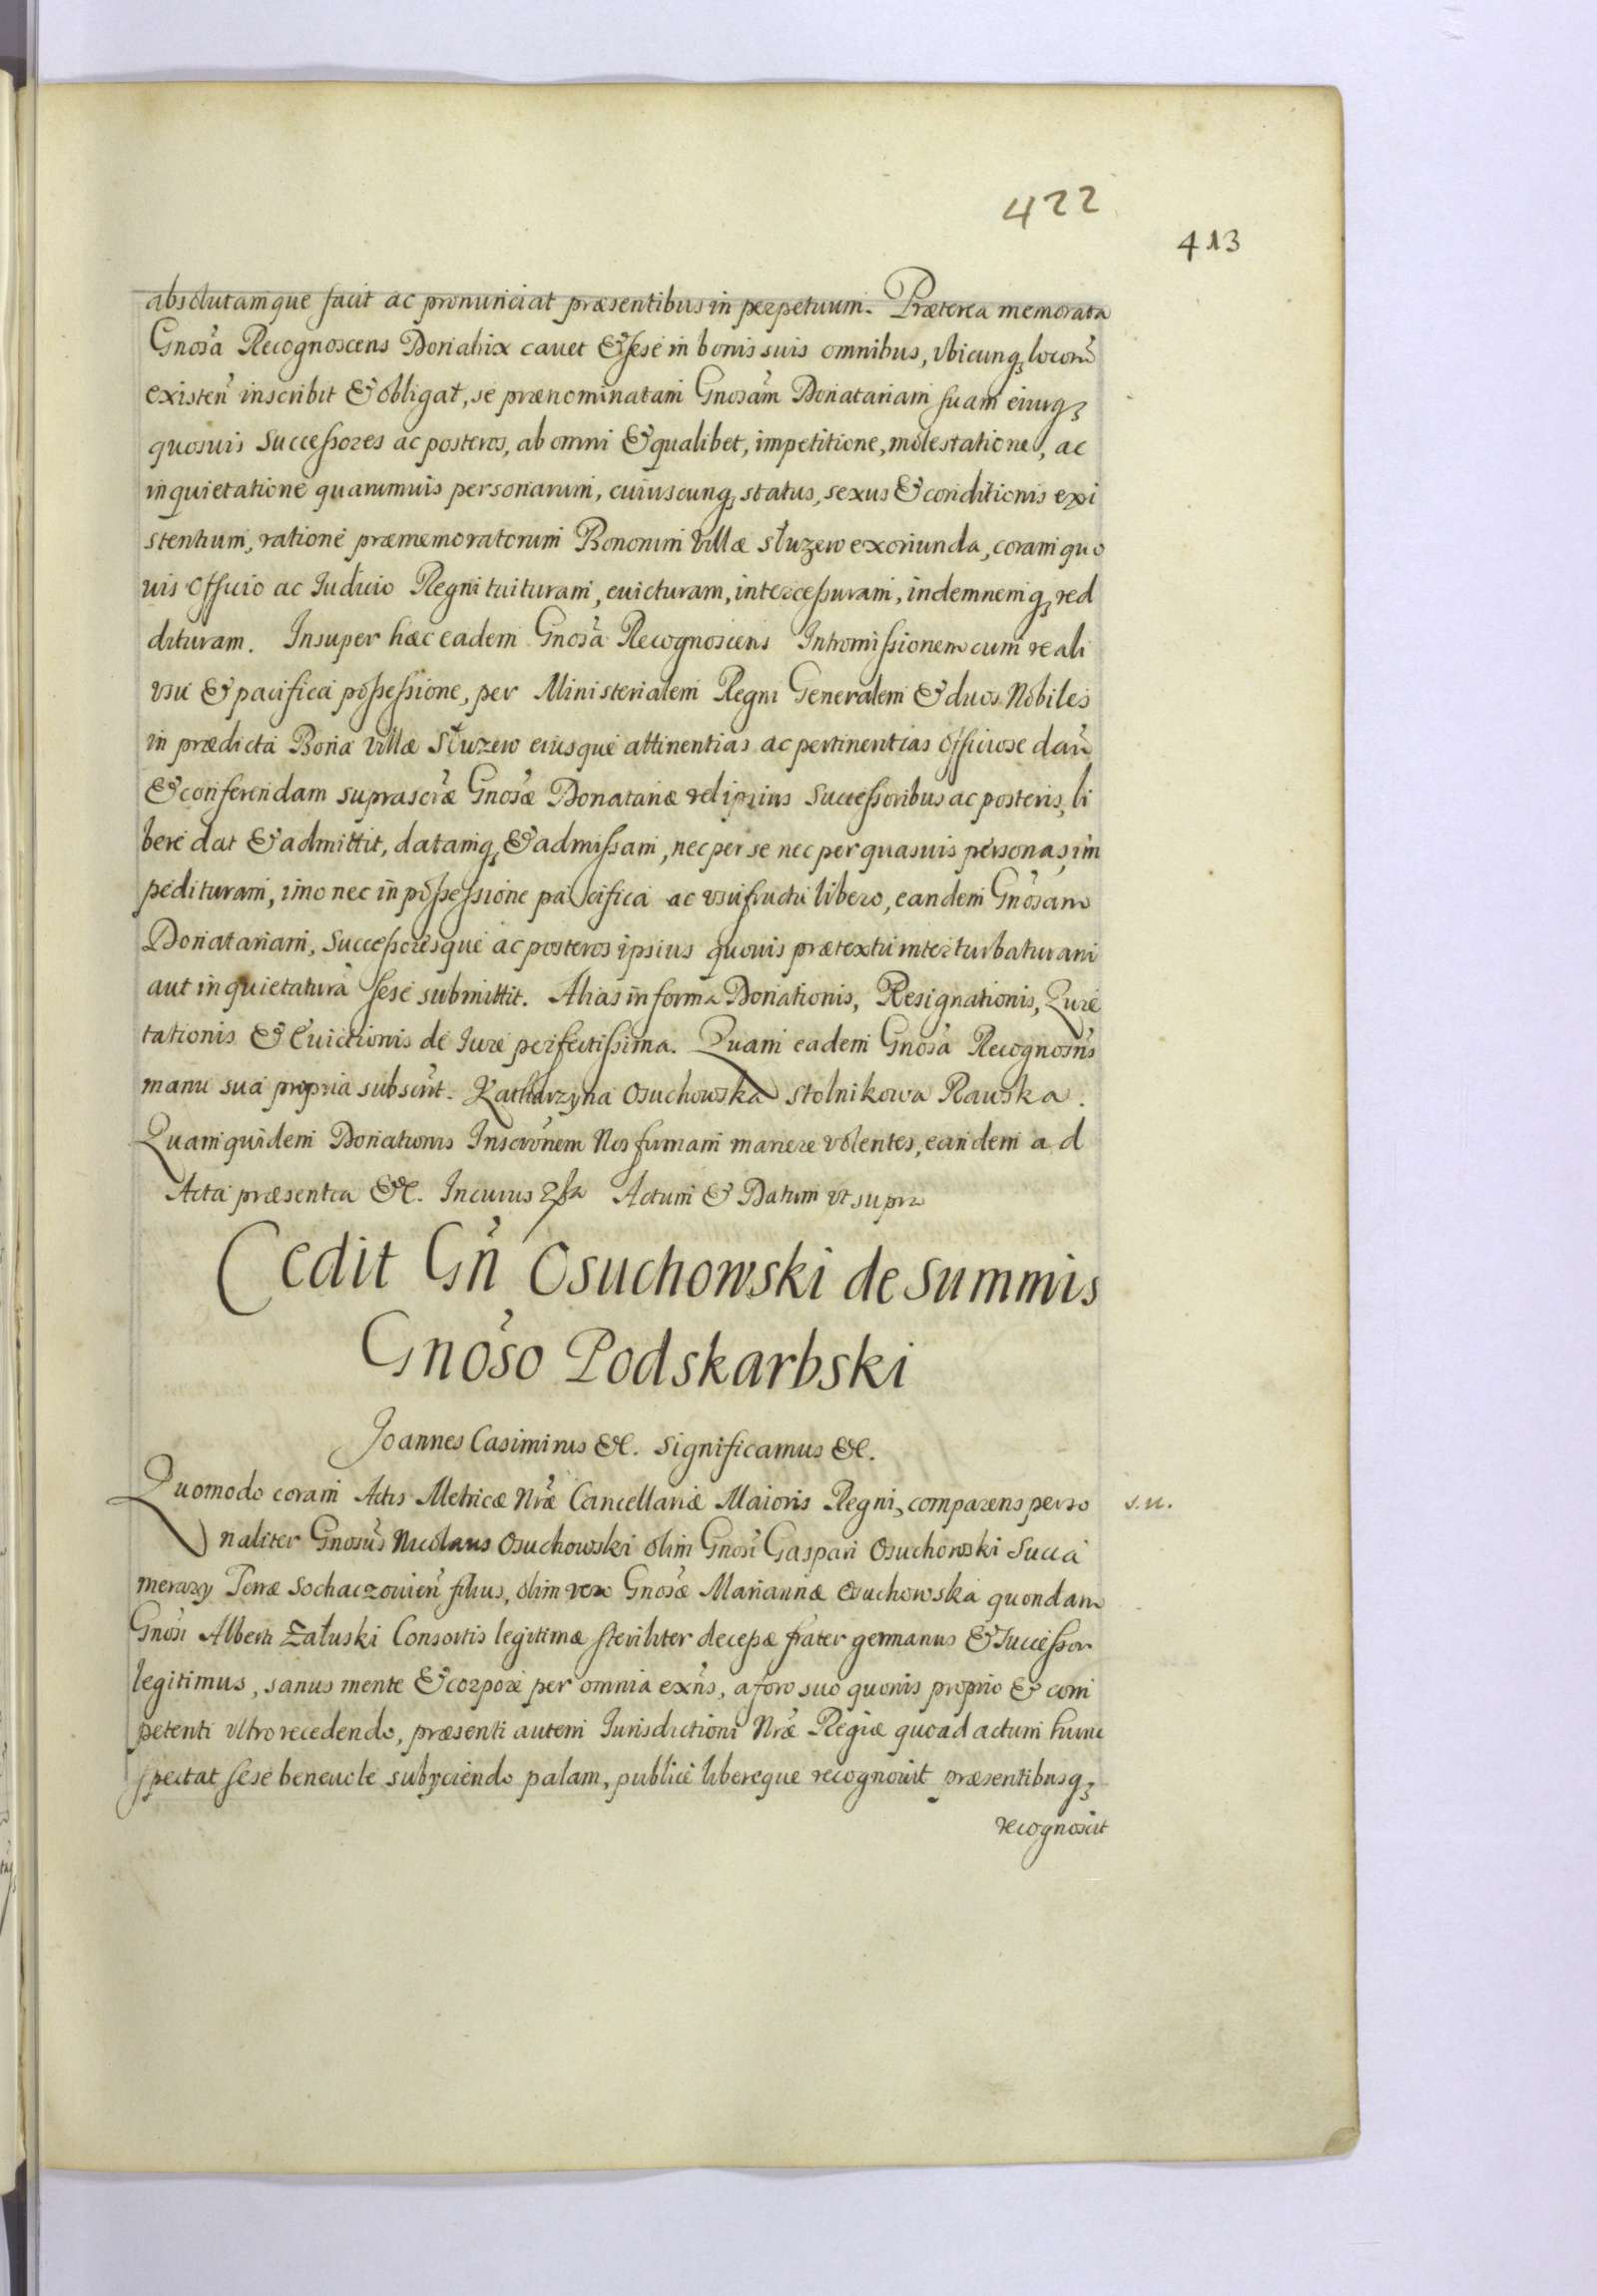 422
413
absolutamque facit ac pronunciat præsentibus in perpetuum. Præterea memorata
Gnosa Recognoscens Donatrix cavet & sese in bonis suis omnibus, vbicunq locorũ
existeñ inscribit & obligat, se prænominatam Gnosam Donatariam suam eiusq
quosuis Successores ac posteros, ab omni & qualibet, impetitione, molestatione, ac
inquietatione quarumuis personarum, cuiuscunq status, sexus & conditionis exi
stentium, ratione præmemoratorum Bonorum Villæ Służew exoriunda, coram quo
uis Officio ac Iudicio Regni tuituram, euicturam, intercessuram, indemnemq red
dituram. Insuper hæc eadem Gnosa Recognoscens Intromissionem cum reali
vsu & pacifica possessione, per Ministerialem Regni Generalem & duos Nobiles
in prædicta Bona Villæ Służew eiusque attinentias ac pertinentias officiose dañ
& conferendam suprascræ Gnosæ Donatariæ vel ipsius Successoribus ac posteris, li
bere dat & admittit, datamq & admissam, nec per se nec per quasuis personas, im
pedituram, imo nec in possessione pacifica ac vsufructu libero, eandem Gnosam
Donatariam, Successoresque ac posteros ipsius quouis prætextu interturbaturam
aut inquietaturã sese submittit. Alias in forma Donationis, Resignationis, Quie
tationis & Euictionis de Iure perfectissima. Quam eadem Gnosa Recognosns
manu sua propria subscrit. Katharzyna Osuchowska Stolnikowa Rawska.
Quam quidem Donationis Inscrõnem Nos firmam manere volentes, eandem ad
Acta præsentia &c. In cuius Actum & Datum vt supra
Cedit Gñ Osuchowski de Summis
Gnoso Podskarbski
Joannes Casimirus &c. Significamus &c.
Quomodo coram Actis Metricæ Nræ Cancellariæ Maioris Regni, comparens perso
s.n.
naliter Gnosus Nicolaus Osuchowski olim Gnosi Gaspari Osuchowski Succa
merary Terræ Sochaczouien filius, olim vero Gnosæ Mariannæ Osuchowska quondam
Gnosi Alberti Załuski Consortis legitimæ steriliter decessæ frater germanus & Successor
legitimus, sanus mente & corpore per omnia exns, a foro suo quouis proprio & com
petenti vltro recedendo, præsenti autem Iurisdictioni Nræ Regiæ quoad actum hunc
spectat sese beneuole subyciendo palam, publice libereque recognouit præsentibusq
recognoscit